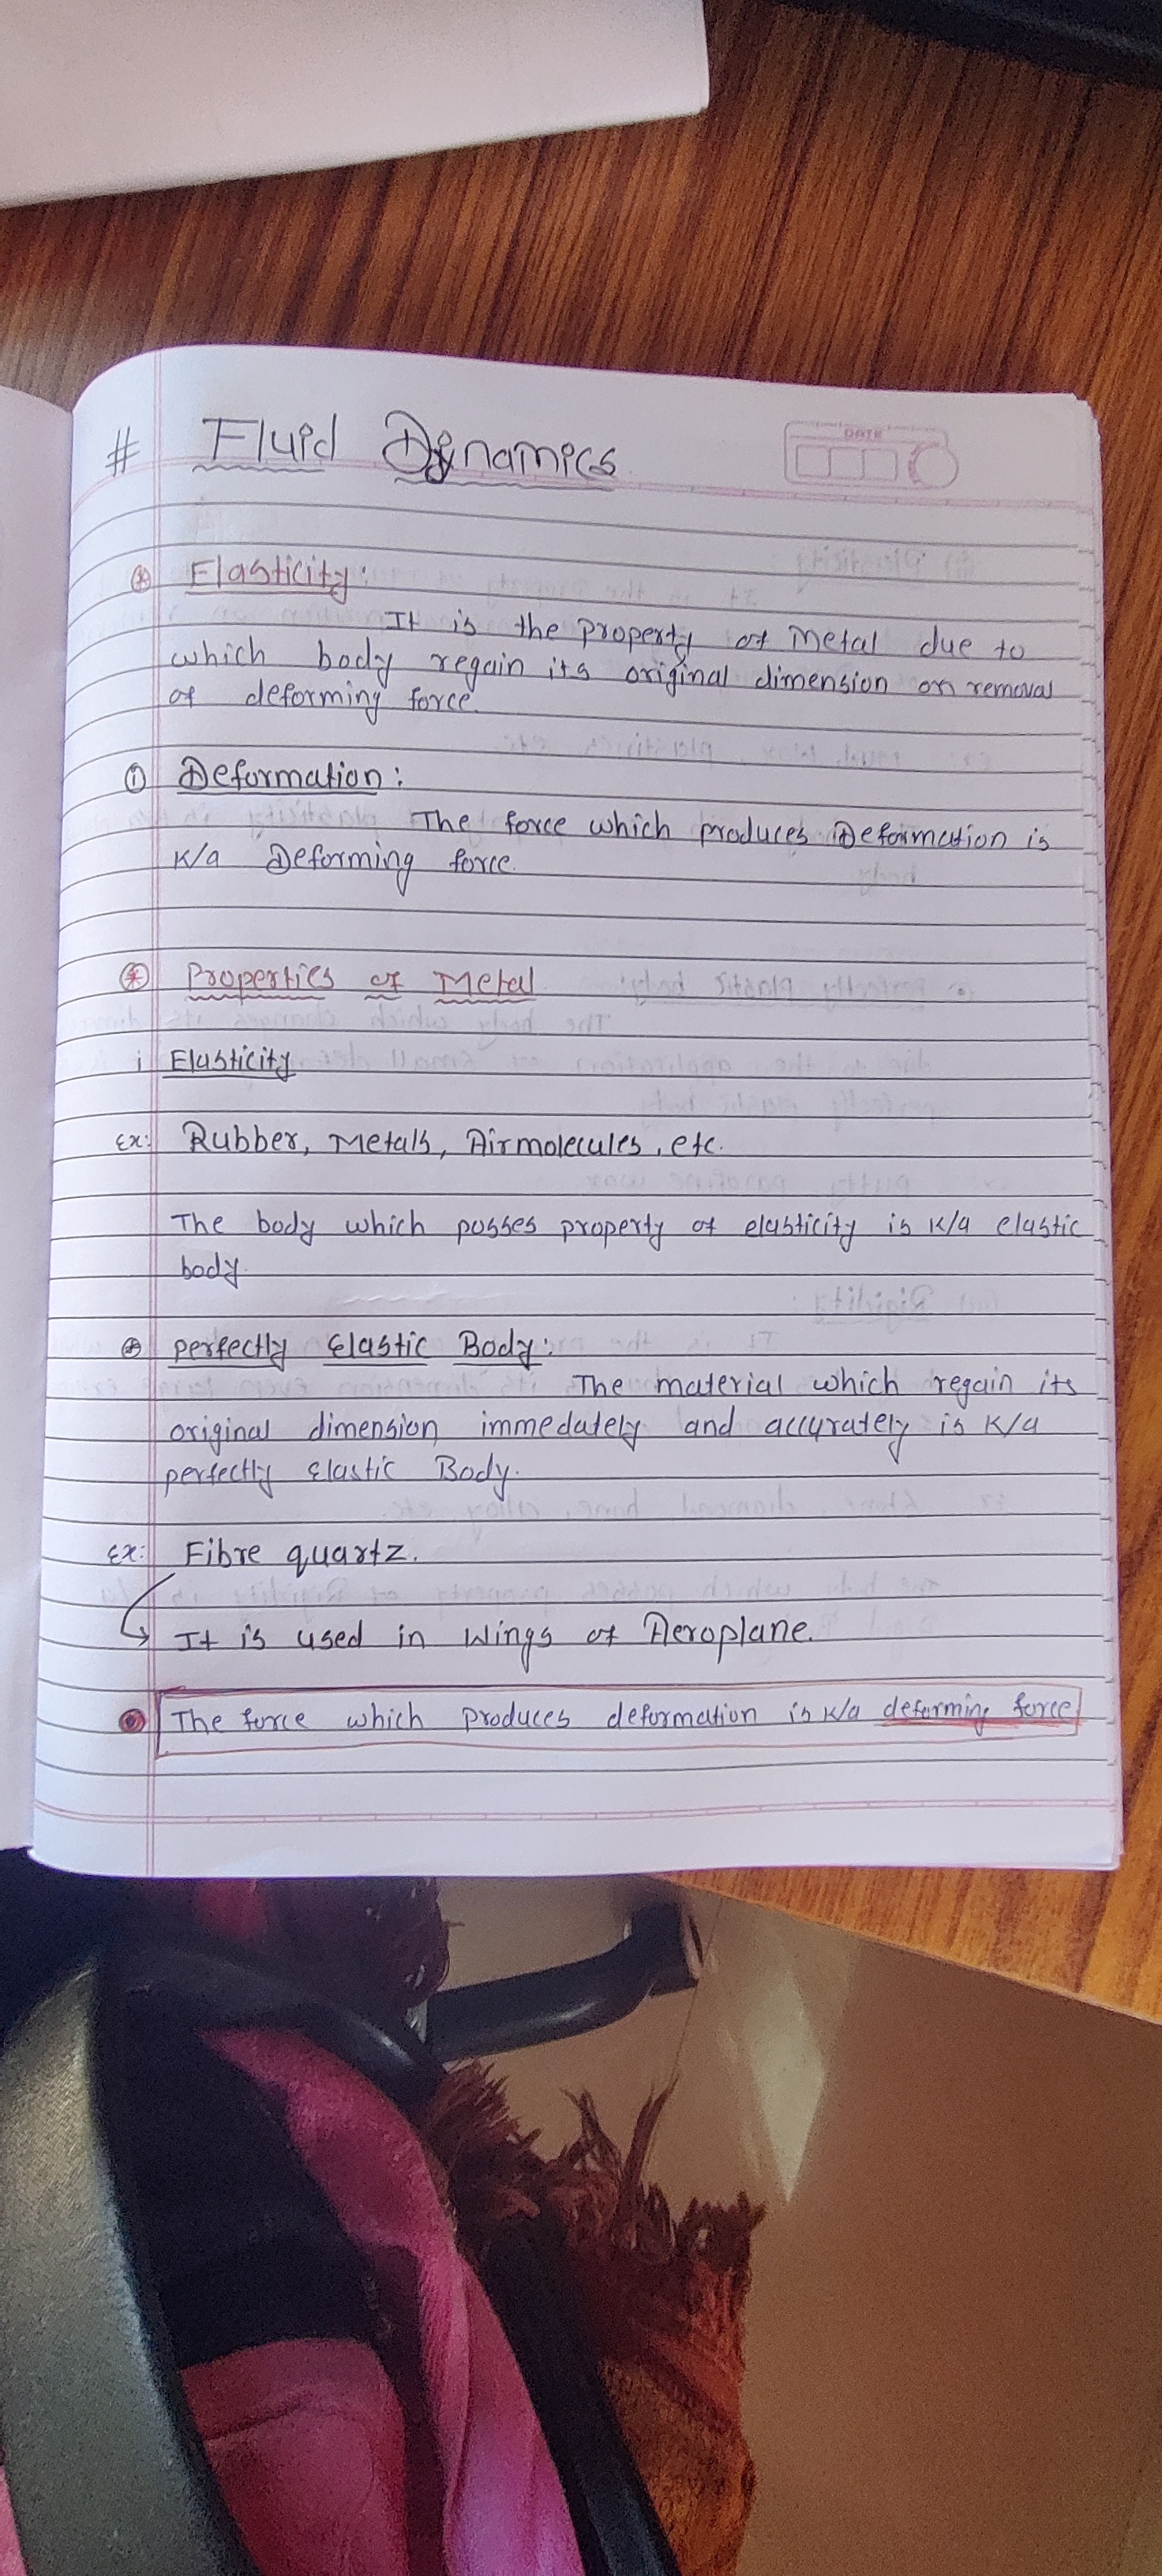 # Fluid Dynamics
DATE
Elasticity:
It is the property of Metal due to
which body regain its original dimension on removal
of deforming force.
① Deformation:
The force which produces Deformation is
K/a Deforming force.
Properties of Metal
i Elasticity
Ex: Rubber, Metals, Airmolecules, etc.
The body which posses property of elasticity is K/a elastic
body.
perfectly Elastic Body:
The material which regain its
original dimension immedately and accurately is K/a
perfectly Elastic Body.
Ex: Fibre quartz.
It is used in Wings of Aeroplane.
The force which produces deformation is K/a deforming force